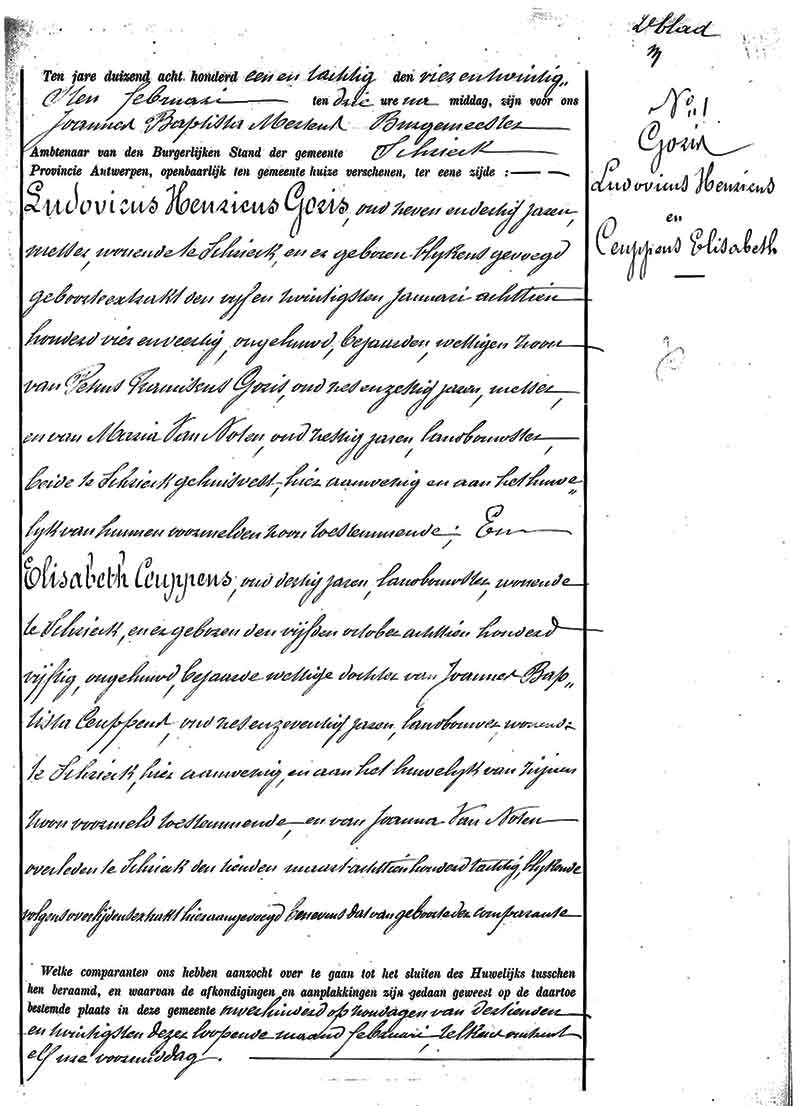 2e blad
Ten jare duizend acht honderd een en tachtig den vier en twintig„
sten februari ten drie ure na middag, zijn voor ons
Joannes Baptista Mertens Burgemeester
Ambtenaar van den Burgerlijken Stand der gemeente Schrieck
Provincie Antwerpen, openbaarlijk ten gemeente huize verschenen, ter eene zijde :
Ludovicus Henricus Goris, oud zeven en dertig jaren,
metser, wonende te Schrieck, en er geboren blykens gevoegd
geboortextrakt den vyf en twintigsten Januari achttien
honderd vier en veertig, ongehuwd, bejaarden, wettigen zoon
van Petrus Franciskus Goris, oud zes en zestig jaren, metser,
en van Maria Van Noten, oud zestig jaren, landbouwster,
beide te Schrieck gehuisvest, hier aanwezig en aan het huwe„
lyk van hunnen voormelden zoon toestemmende; En
Elisabeth Ceuppens, oud dertig jaren, landbouwster, wonende
te Schrieck, en er geboren den vijfden october achttien honderd
vijftig, ongehuwd, bejaarde wettige dochter van Joannes Bap„
tista Ceuppens, oud zes en zeventig jaren, landbouwer, wonende
te Schrieck, hier aanwezig, en aan het huwelyk van zijnen
zoon voormeld toestemmende, en van Joanna Van Noten
overleden te Schrieck den tienden maart achttien honderd tachtig, blykende
volgens overlijdensextrakt hieraangevoegd benevens dat van geboorte der comparante
Welke comparanten ons hebben aanzocht over te gaan tot het sluiten des Huwelijks tusschen
hen beraamd, en waarvan de afkondigingen en aanplakkingen zijn gedaan geweest op de daartoe
bestemde plaats in deze gemeente onverhinderd op zondagen van dertienden
en twintigsten dezer loopende maand februari, telkens omtrent
elf ure voormiddag.
No 1
Goris
Ludovicus Henricus
en
Ceuppens Elisabeth